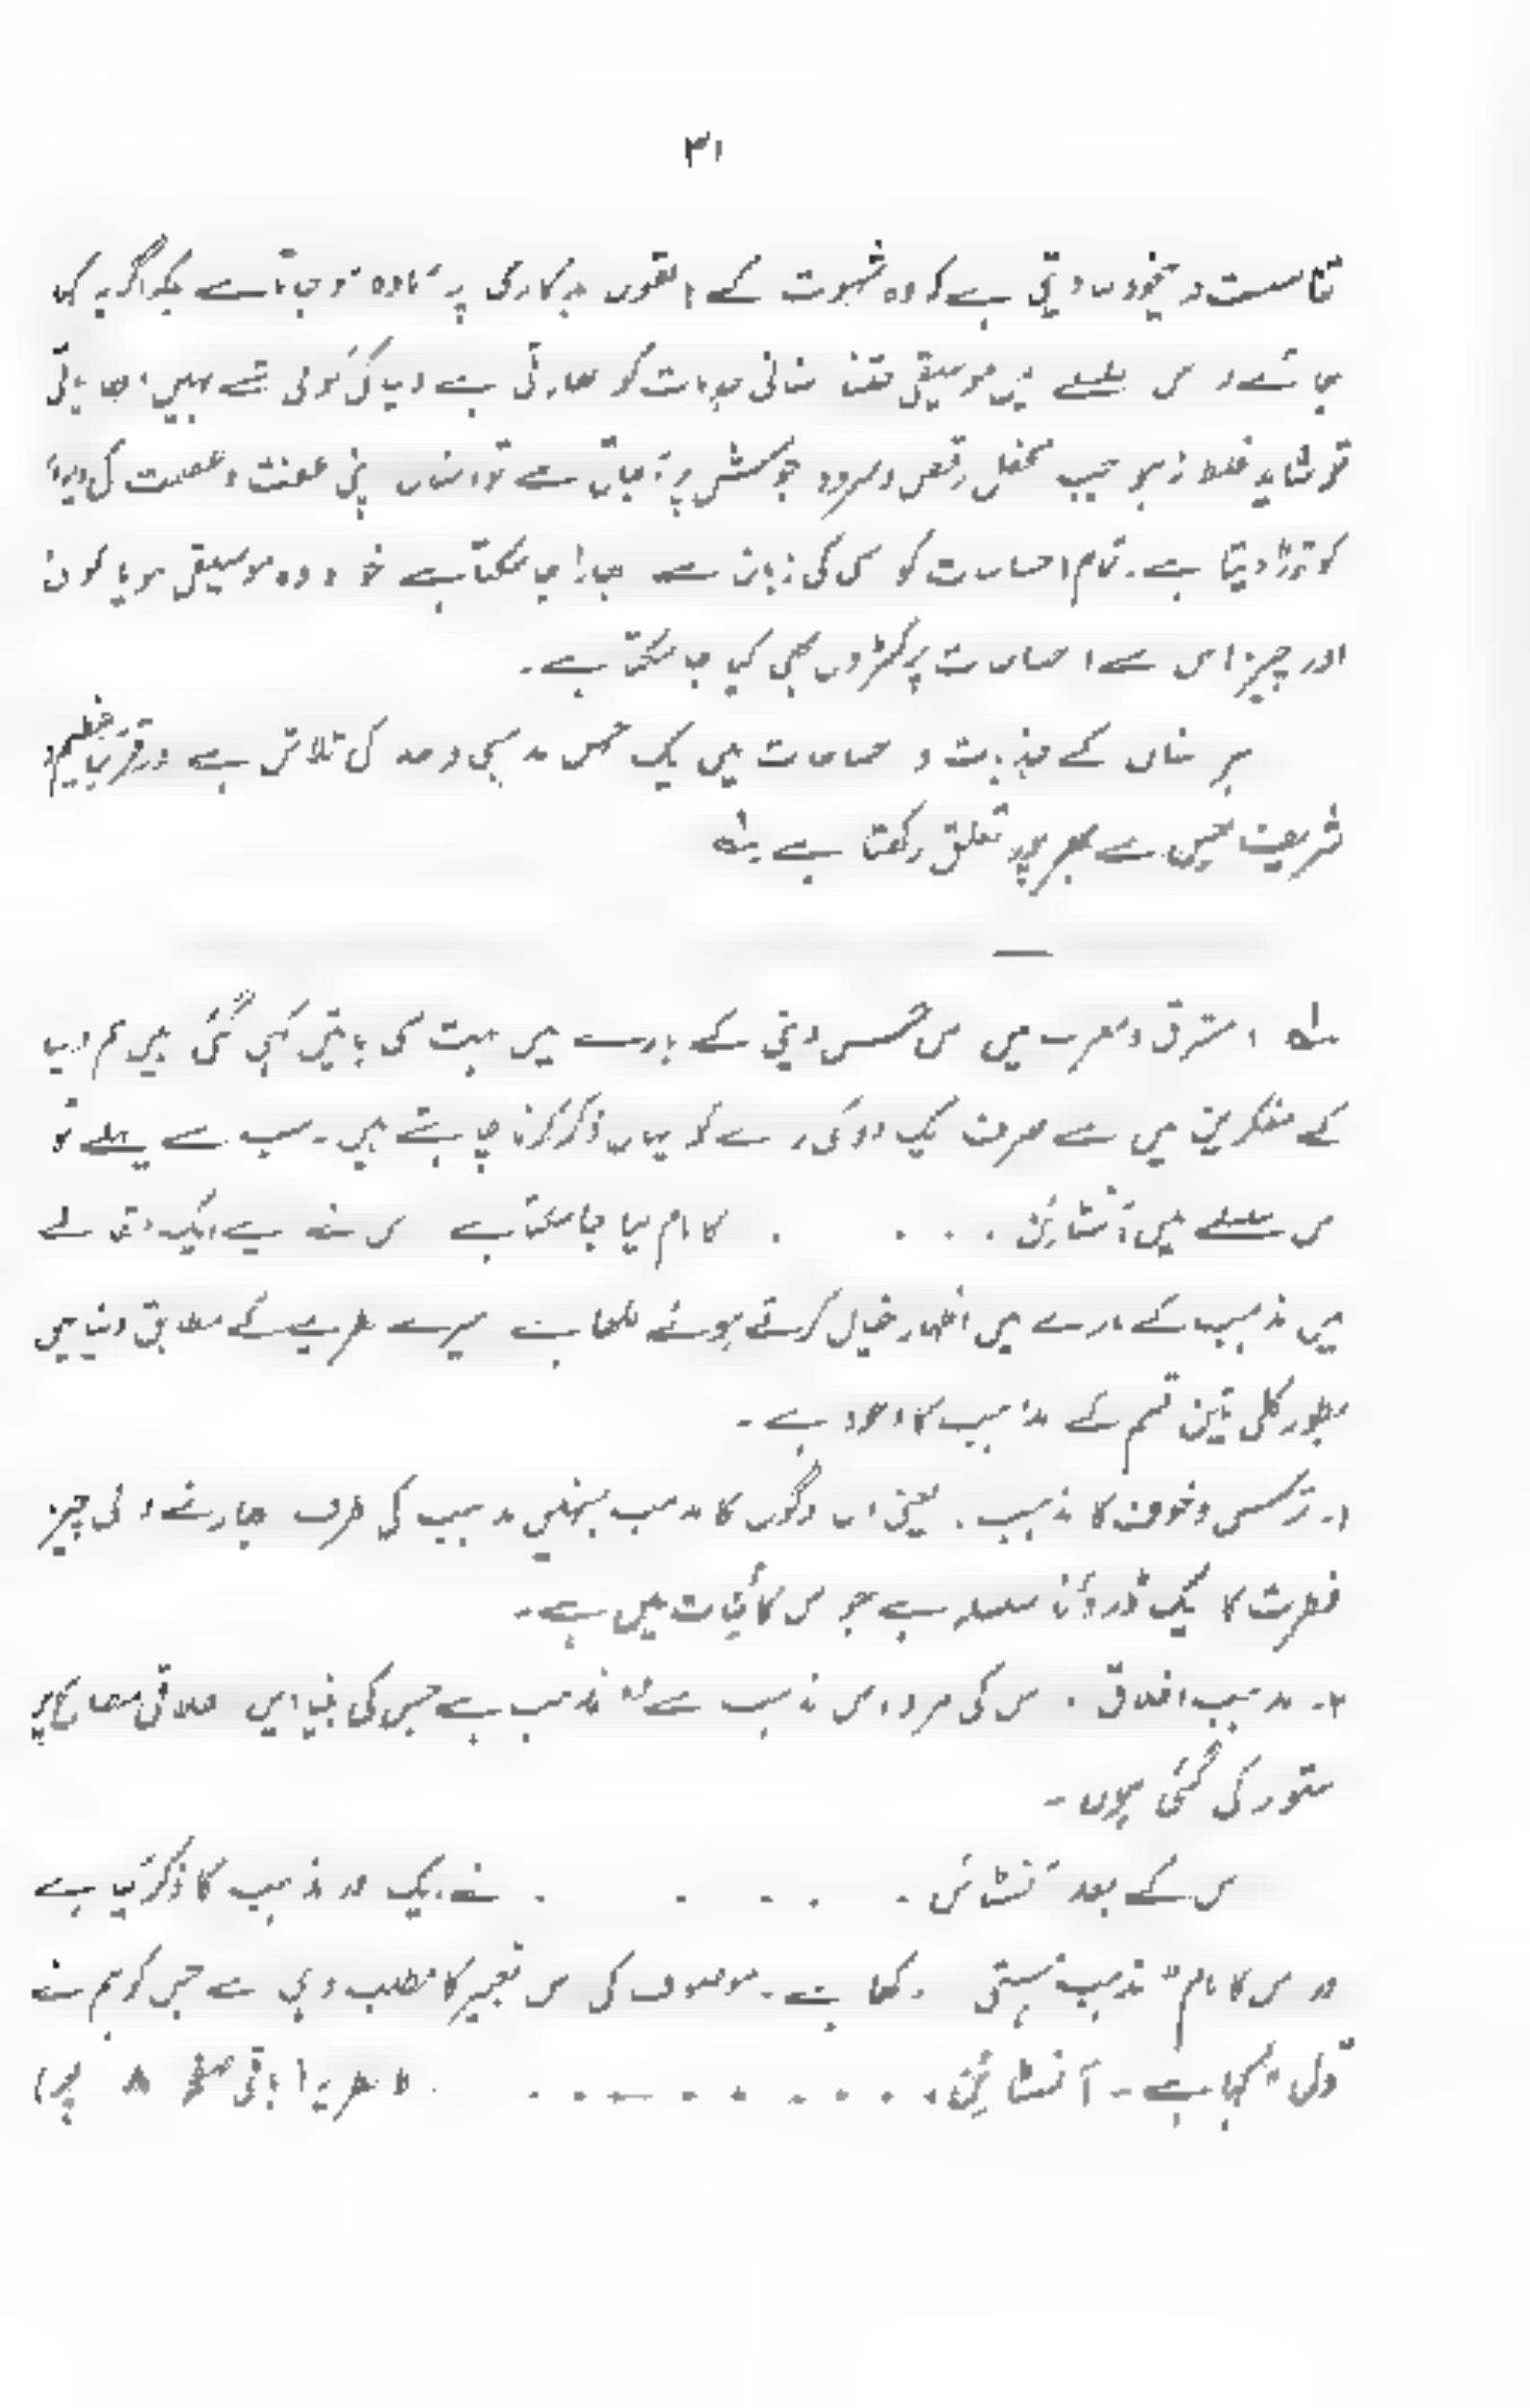 ۳۱
مست و بیخود بنا دیتی ہے کہ وہ شہوت کے ہاتھوں بدکاری پر آمادہ ہو جاتا ہے بلکہ اگر یہ کہا
جائے کہ اس سلسلے میں موسیقی جتنا انسانی جذبات کو ابھارتی ہے دنیا کی کوئی شے نہیں ابھارتی
تو شاید غلط نہ ہو جب محفل رقص و سرود جوش پر آ جاتی ہے تو انسان اپنی عفت و عصمت کی دیوار
کو توڑ دیتا ہے۔ تمام احساسات کو اسی کی زبان سے ابھارا جا سکتا ہے خواہ وہ موسیقی ہو یا کوئی
اور چیز اس سے احساسات پر کنٹرول بھی کیا جا سکتا ہے۔
ہر انسان کے جذبات و احساسات میں ایک حس مذہبی و خدا کی تلاش ہے اور
شریعت اسی سے بھرپور تعلق رکھتا ہے
مشرق و مغرب میں اس حس دینی کے بارے میں بہت سی باتیں کہی گئی ہیں ہم دنیا
کے مفکرین میں سے صرف ایک دو کی رائے کو یہاں ذکر کرنا چاہتے ہیں۔ سب سے پہلے تو
اس سلسلے میں آئنشٹائن . . . . کا نام لیا جا سکتا ہے اس نے اپنے ایک
میں مذہب کے بارے میں اظہار خیال کرتے ہوئے لکھا ہے میرے نظریے کے مطابق دنیا میں
بطور کلی تین قسم کے مذاہب کا وجود ہے۔
۱۔ ترس و خوف کا مذہب۔ یعنی ان لوگوں کا مذہب جنھیں مذہب کی طرف ابھارنے والی چیز
فطرت کا ایک ڈراؤنا سلسلہ ہے جو اس کائنات میں ہے۔
۲۔ مذہب اخلاق۔ اس کی مراد اس مذہب سے وہ مذہب ہے جس کی بنیادیں اخلاقی مصالح پر
استوار کی گئی ہوں۔
اس کے بعد آئنشٹائن . . . . . نے ایک اور مذہب کا ذکر کیا ہے
اور اس کا نام "مذہب ہستی" رکھا ہے۔ موصوف کی اس تعبیر کا مطلب وہی ہے جس کو ہم نے
کہا ہے۔ آئنشٹائن . . . . . . . . کا نظریہ (باقی صفحہ ۸ پر)